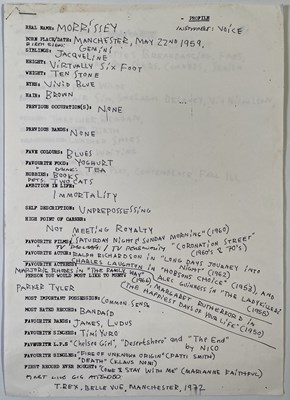 PROFILE
REAL NAME: MORRISSEY INSTRUMENT: VOICE
BORN PLACE/DATE: MANCHESTER, MAY 22ND 1959.
BIRTH SIGN: GEMINI
SIBLINGS: JACQUELINE
HEIGHT: VIRTUALLY SIX FOOT
WEIGHT: TEN STONE
EYES: VIVID BLUE
HAIR: BROWN
PREVIOUS OCCUPATION(S): NONE
PREVIOUS BANDS: NONE
FAVE COLOURS: BLUES
FAVOURITE FOOD: YOGHURT
DRINK: TEA
HOBBIES: BOOKS
PETS: TWO CATS
AMBITION IN LIFE:
IMMORTALITY
SELF DESCRIPTION: UNPREPOSSESSING
HIGH POINT OF CAREER:
NOT MEETING ROYALTY
FAVOURITE FILMS: "SATURDAY NIGHT & SUNDAY MORNING" (1960)
TV PROGRAMME "CORONATION STREET" (1960'S & 70'S)
FAVOURITE ACTORS: RALPH RICHARDSON IN "LONG DAYS JOURNEY INTO NIGHT" (1962)
CHARLES LAUGHTON IN "HOBSONS CHOICE" (1953) AND
MARJORIE RHODES IN "THE FAMILY WAY" (1966) ALEC GUINNESS IN "THE LADYKILLERS" (1955)
PERSON YOU WOULD MOST LIKE TO MEET?
MARGARET RUTHERFORD IN "THE HAPPIEST DAYS OF YOUR LIFE" (1950)
PARKER TYLER
MOST IMPORTANT POSSESSION: COMMON SENSE
MOST HATED RECORD: BANDAID
FAVOURITE BANDS: JAMES, LUDUS
FAVOURITE SINGERS: TIMI YURO
FAVOURITE L.P'S "Chelsea Girl", "Desertshore" and "The End" by NICO
FAVOURITE SINGLES: "FIRE OF UNKNOWN ORIGIN" (PATTI SMITH)
"DEATH" (KLAUS NOMI)
FIRST RECORD EVER BOUGHT: "COME & STAY WITH ME" (MARIANNE FAITHFUL)
FIRST LIVE GIG ATTENDED
T. REX, BELLE VUE, MANCHESTER, 1972